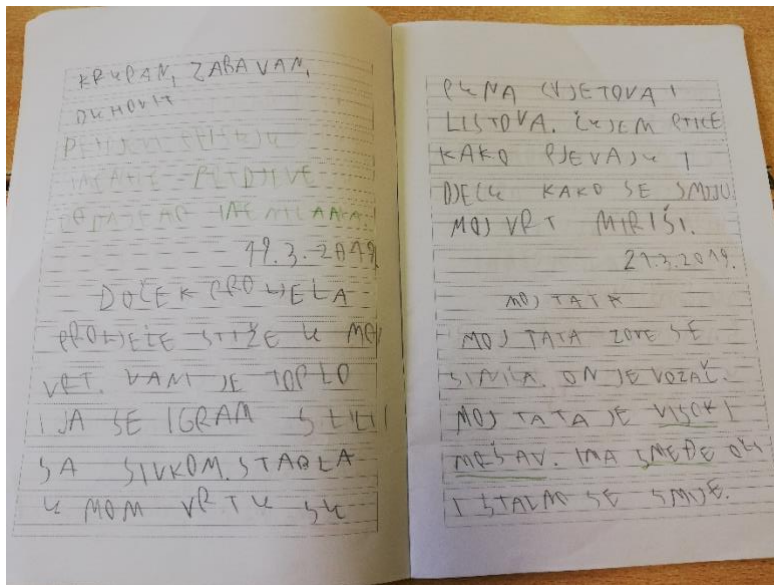 KRUPAN, ZABAVAN,
DUHOVIT
19.3.2019.
DOČEK PROLJEĆA
PROLJEĆE STIŽE U MOJ
VRT. VANI JE TOPLO
I JA SE IGRAM S LILI I
SA SIVKOM. STABLA
U MOM VRTU SU
PUNA CVJETOVA I
LISTOVA. ČUJEM PTICE
KAKO PJEVAJU I
DJECU KAKO SE SMIJU
MOJ VRT MIRIŠI.
21.3.2019.
MOJ TATA
MOJ TATA ZOVE SE
SINIŠA. ON JE VOZAČ.
MOJ TATA JE VISOK I
MRŠAV. IMA SMEĐE OČI
I STALNO SE SMIJE.